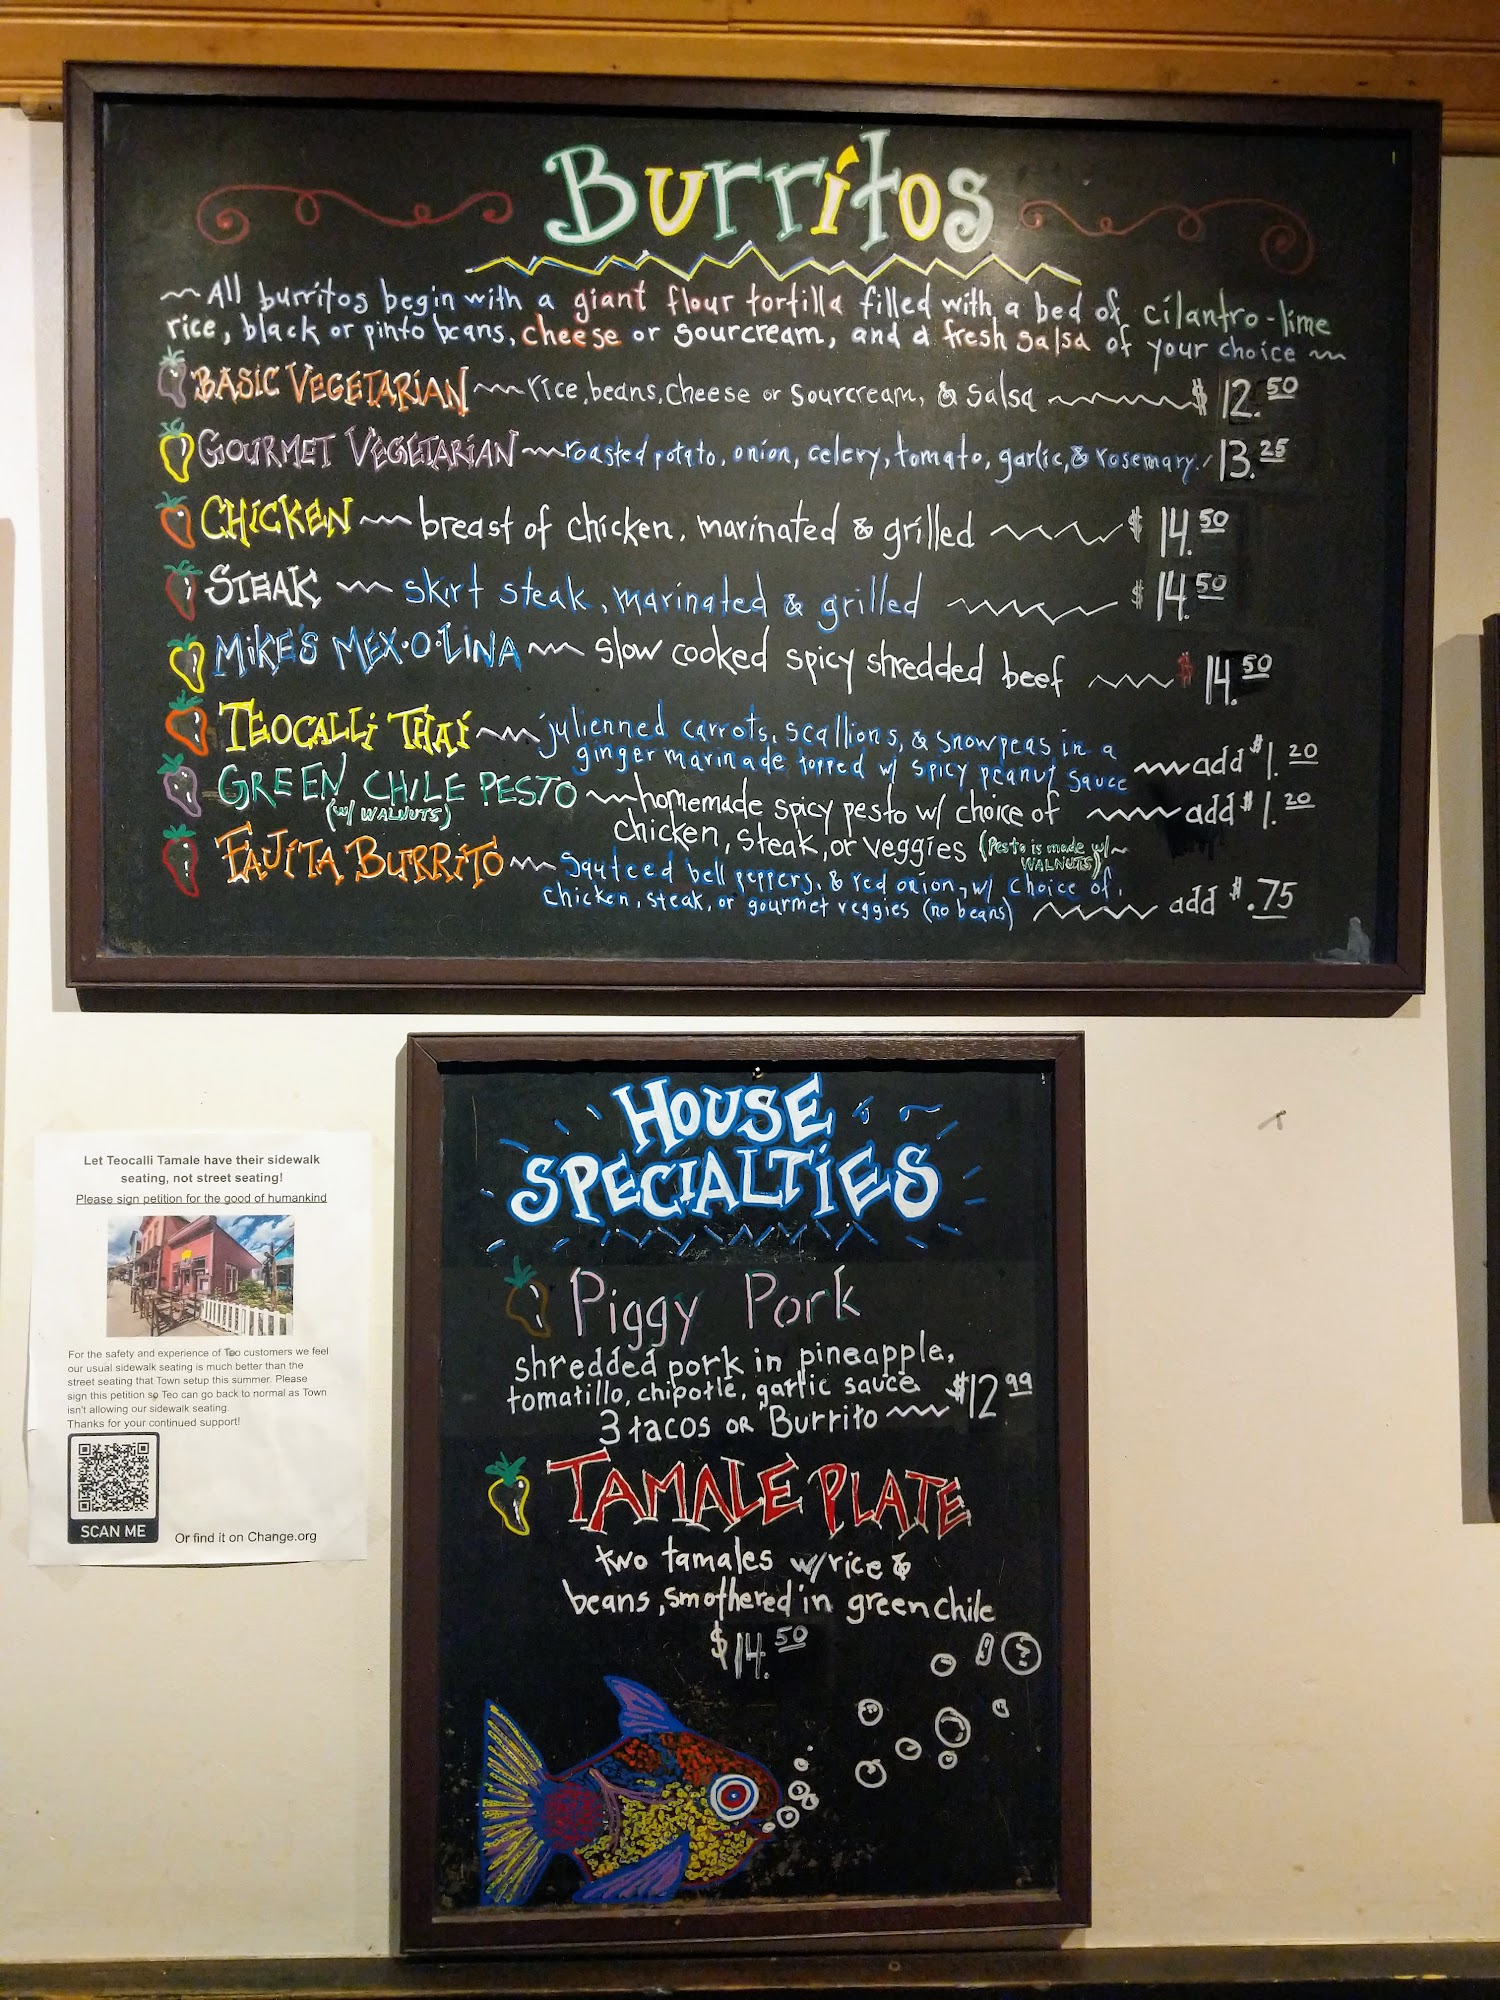 Burritos
~All burritos begin with a giant flour tortilla filled with a bed of cilantro-lime
rice, black or pinto beans, cheese or sourcream, and a fresh salsa of your choice~
BASIC VEGETARIAN ~ rice, beans, cheese or sourcream, & salsa $12.50
GOURMET VEGETARIAN ~ roasted potato, onion, celery, tomato, garlic, & rosemary. 13.25
CHICKEN ~ breast of chicken, marinated & grilled $14.50
STEAK ~ skirt steak, marinated & grilled $14.50
MIKE'S MEX·O·LINA ~ slow cooked spicy shredded beef $14.50
TEOCALLI THAI ~ julienned carrots, scallions, & snowpeas in a
ginger marinade topped w/ spicy peanut sauce ~ add $1.20
GREEN CHILE PESTO ~ homemade spicy pesto w/ choice of ~ add $1.20
(w/ WALNUTS)
chicken, steak, or veggies (Pesto is made w/~
WALNUTS)
FAJITA BURRITO ~ Sauteed bell peppers, & red onion, w/ choice of
chicken, steak, or gourmet veggies (no beans) add $.75
HOUSE
SPECIALTIES
Piggy Pork
shredded pork in pineapple,
tomatillo, chipotle, garlic sauce $12.99
3 tacos OR Burrito
TAMALE PLATE
two tamales w/rice &
beans, smothered in green chile
$14.50
Let Teocalli Tamale have their sidewalk
seating, not street seating!
Please sign petition for the good of humankind
For the safety and experience of Teo customers we feel
our usual sidewalk seating is much better than the
street seating that Town setup this summer. Please
sign this petition so Teo can go back to normal as Town
isn't allowing our sidewalk seating.
Thanks for your continued support!
SCAN ME
Or find it on Change.org